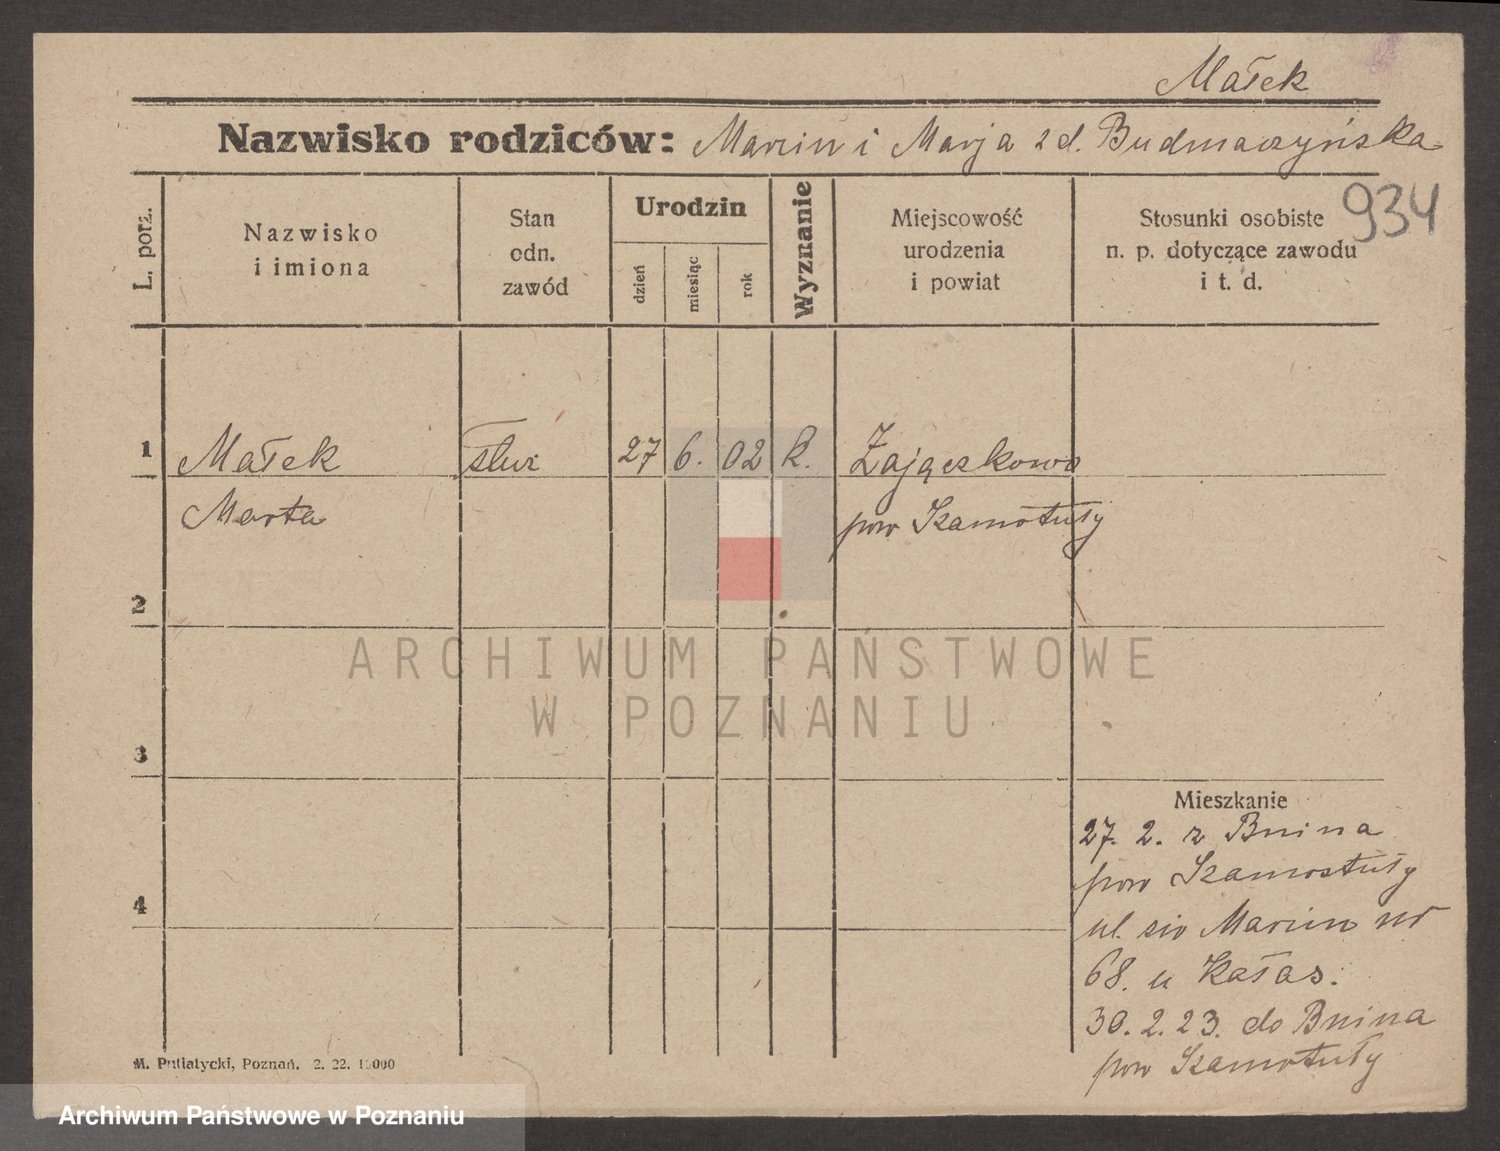 Małek
Nazwisko rodziców: Marcin i Marja z d. Budmaczyńska
934
L. porz.
Nazwisko
i imiona
Stan
odn.
zawód
Urodzin
dzień
miesiąc
rok
Wyznanie
Miejscowość
urodzenia
i powiat
Stosunki osobiste
n. p. dotyczące zawodu
i t. d.
1 Małek służ 27 6. 02 k. Zajączkowo
Marta pow Szamotuły
2
3
4
ARCHIWUM PAŃSTWOWE
W POZNANIU
Mieszkanie
27. 2. z Bnina
pow Szamostuły
ul. św Marcin nr
68. u Kałas.
30. 2. 23. do Bnina
pow Szamotuły
M. Putiatycki, Poznań. 2. 22. 10000
Archiwum Państwowe w Poznaniu